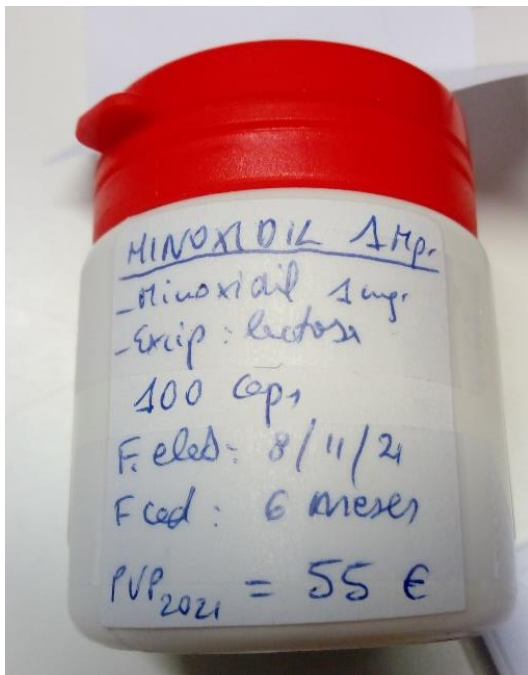 MINOXIDIL 1 Mgr.
- Minoxidil 1 mgr.
- Excip: lactosa
100 caps
F. elab: 8/11/21
F cad: 6 meses
PVP2021 = 55 €